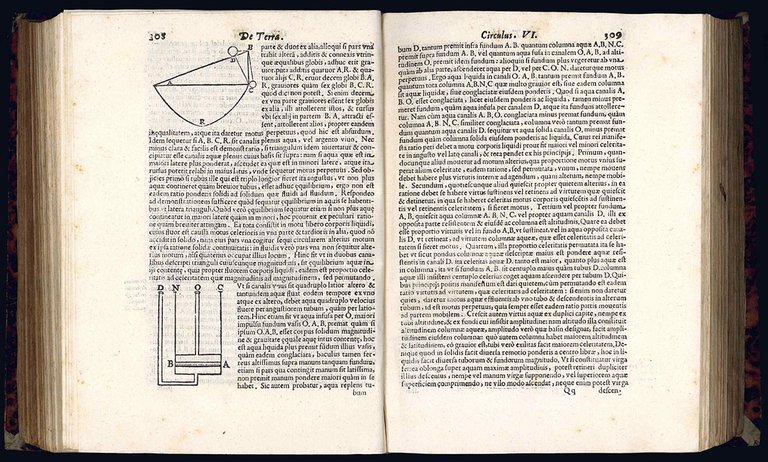 308 De Terra.
parte & duos ex alia, alioqui si pars vna
trahit alterā, additis & connexis vtrin-
que æqualibus globis, adhuc erit gra-
uior pars additis quatuor A, R. & qua-
tuor alijs C, R, eruut decem globi B. A,
R, grauiores quàm sex globi B, C, R.
quod dici non potest. Si enim decem,
ex vna parte grauiores essent sex globis
ex alia, illi attollerent istos, & rursus
vbi sex alij in partem B. A, attracti es-
sent, attollerent alios, propter eandem
inæqualitatem, atque ita daretur motus perpetuus, quod hic est absurdum.
Idem sequetur si A, B, C, R, sit canalis plenus aqua, vel argento viuo, Nec
minus clara & facilis est demonstratio, si triangulum idem inuertatur & con-
cipiatur esse canalis aquæ plenus cuius basis sit supra: nam si aqua quæ est in
maiori latere plus ponderat, ascendet ea quæ est in minori latere, atque ita
rursus poterit relabi in maius latus, vnde sequetur motus perpetuus. Sed ob-
ijcies primò si tubus ille qui est triplo longior fieret ita angustus, vt non plus
aquæ contineret quàm breuior tubus, esset adhuc equilibrium, ergo non est
eadem ratio ponderis solidi ad solidum quæ fluidi ad fluidum. Respondeo
ad demonstrationem sufficere quòd sequatur equilibrium in aquis se habenti-
bus vt latera trianguli. Quòd verò equilibrium sequatur etiam si non plus aquæ
contineatur in maiori latere quàm in minori, hoc prouenit ex peculiari ratio-
ne quam breuiter attingam. Ea tota consistit in motu libero corporis liquidi,
cuius fluor est causa motus celerioris in vna parte & tardioris in alia, quod nō
accidit in solido, nam eius pars vna cogitur sequi circularem alterius motum
ex ipsa ratione solidæ continuitatis: in fluidis verò pars vna non sequitur alte-
rius motum, nisi quatenus occupat illius locum. Hinc fit vt in duobus cana-
libus descripti trianguli cuiuscumque magnitudinis, sit equilibrium aquæ in
ijs contentæ, quia propter fluorem corporis liquidi, eadem est proportio cele-
ritatis ad celeritatem quæ magnitudinis ad magnitudinem, sed permutando,
Vt si canalis vnus sit quadruplo latior altero &
tantundem aquæ fluat eodem tempore ex vno
atque ex altero, debet aqua quadruplo velocius
fluere per angustiorem tubum, quàm per latio-
rem. Hinc etiam fit vt aqua infusa per O, maiori
impulsu fundum vasis O, A, B, premat quàm si
ipsum O.A,B, esset corpus solidum magnitudi-
ne & grauitate equale aquæ intus contentæ, hoc
est aqua liquida plus premit fūdum illius vasis,
quàm eadem conglaciata, baculus tamen fer-
reus altissimus supra manum tangatur fundum,
etiam si pars quæ contingit manum sit latissima,
non premit manum pondere maiori quàm in se
habet. Sic autem probatur, aqua replens tu-
bum
D N O C
B A
B
D
A C
R
Circulus. VI. 309
bum D, tantum premit infra fundum A. B. quantum columna aquæ A,B,N.C.
premit supra fundum A, B, vel quantum aqua fusa in canalem O, A, B, ad alti-
tudinem O, premit idem fundum: alioqui si fundum plus vrgeretur ab vna,
quàm ab alia parte, ascenderet aqua per D, vel per C. O N. dareturque motus
perpetuus, Ergo aqua liquida in canali O. A, B. tantum premit fundum A, B,
quantum tota columna A,B,N,C quæ multo grauior est, siue columna possita
sit aquæ liquidæ, siue conglaciatæ eiusdem ponderis; Quod si aqua canalis A,
B, O, esset conglaciata, licet eiusdem ponderis ac liquida, tamen minus pre-
meret fundum, quàm aqua infusa per canalem D, atque ita fundum attollere-
tur. Nam cùm aqua canalis A, B, O. conglaciata minus premat fundum, quàm
columna A, B, N, C. similiter conglaciata, columna verò tantum premat fun-
dum quantum aqua canalis D. sequitur vt aqua solida canalis O, minus premat
fundum quàm columna solida eiusdem ponderis ac liquida, Cuius rei manife-
sta ratio peti debet à motu corporis liquidi prout fit maiori vel minori celerita-
te in angusto vel lato canali, & tota pendet ex his principijs, Primum, quan-
documque aliud mouetur ad motum alterius, qua proportione motus vnius su-
perat alium celeritate, eadem ratione, sed permutata, vnum, nempe mouens
debet habere plus virtutis internæ ad agendum, quam alterum, nempe mobi-
le. Secundum, quotiescunque aliud quiescit propter quietem alterius, in ea
ratione debet se habere virtus sustinens vel retinens ad virtutem quæ quiescit
& detinetur, in qua se haberet celeritas motus corporis quiescentis ad sustinen-
tis, vel retinentis celeritatem, si fieret motus, Tertium vel propter fundum,
A, B, quiescit aqua columnæ A. B, N, C. vel propter aquam canalis D, illi ex
opposita parte resistentem & eiusdē ac columna est altitudinis, Quare ea debet
esse proportio virtutis vel in fundo A,B, vt sustineat, vel in aqua opposita cana-
lis D, vt retineat, ad virtutem columnæ aquæ, quæ esset celeritatis ad celeri-
tatem si fieret motus, Quartum, illa proportio celeritatis permutata ita se ha-
bet vt sicut pondus columnæ aquæ descriptæ maius est pondere aquæ resi-
stentis in canali D, ita celeritas aquæ D. tanto est maior, quanto plus aquæ est
in columna, ita vt si fundus A, B. sit centuplo maius quàm tubus D, columna
aquæ illi insistens centuplo celerius coget aquam ascendere per tubum D. Qui-
bus principijs positis manifestum est dari quietem: cùm permutando eadem sit
ratio virtutis ad virtutem, quæ celeritatis ad celeritatem: si enim non daretur
quies, daretur motus aquæ effluentis ab vno tubo & descendentis in alterum
tubum, id est motus perpetuus, quia semper esset eadem ratio partis mouentis
ad partem mobilem. Crescit autem virtus aquæ ex duplici capite, nempe ex
tubi altitudine, & ex fundi cui insistit amplitudine nam altitudo illa constituit
altitudinem columnæ aqueæ, amplitudo verò quæ basin designat, facit ampli-
tudinem eiusdem columnæ: quò autem columna habet maiorem altitudinem
& latitudinem, eò grauior est: tubi verò altitudo facit maiorem celeritatem, De-
nique quod in solidis facit diuersa remotio ponderis à centro libræ, hoc in li-
quidis facit diuersa tuborum & fundorum magnitudo, Vt si constituatur virga
ferrea oblonga super aquam maximæ altitudinis, poterit retineri dupliciter
illius descensus, nempe vel manum virgæ supponendo, vel superiorem aquæ
superficiem comprimendo, ne vllo modo ascendat, neque enim potest virga
Qq descen-